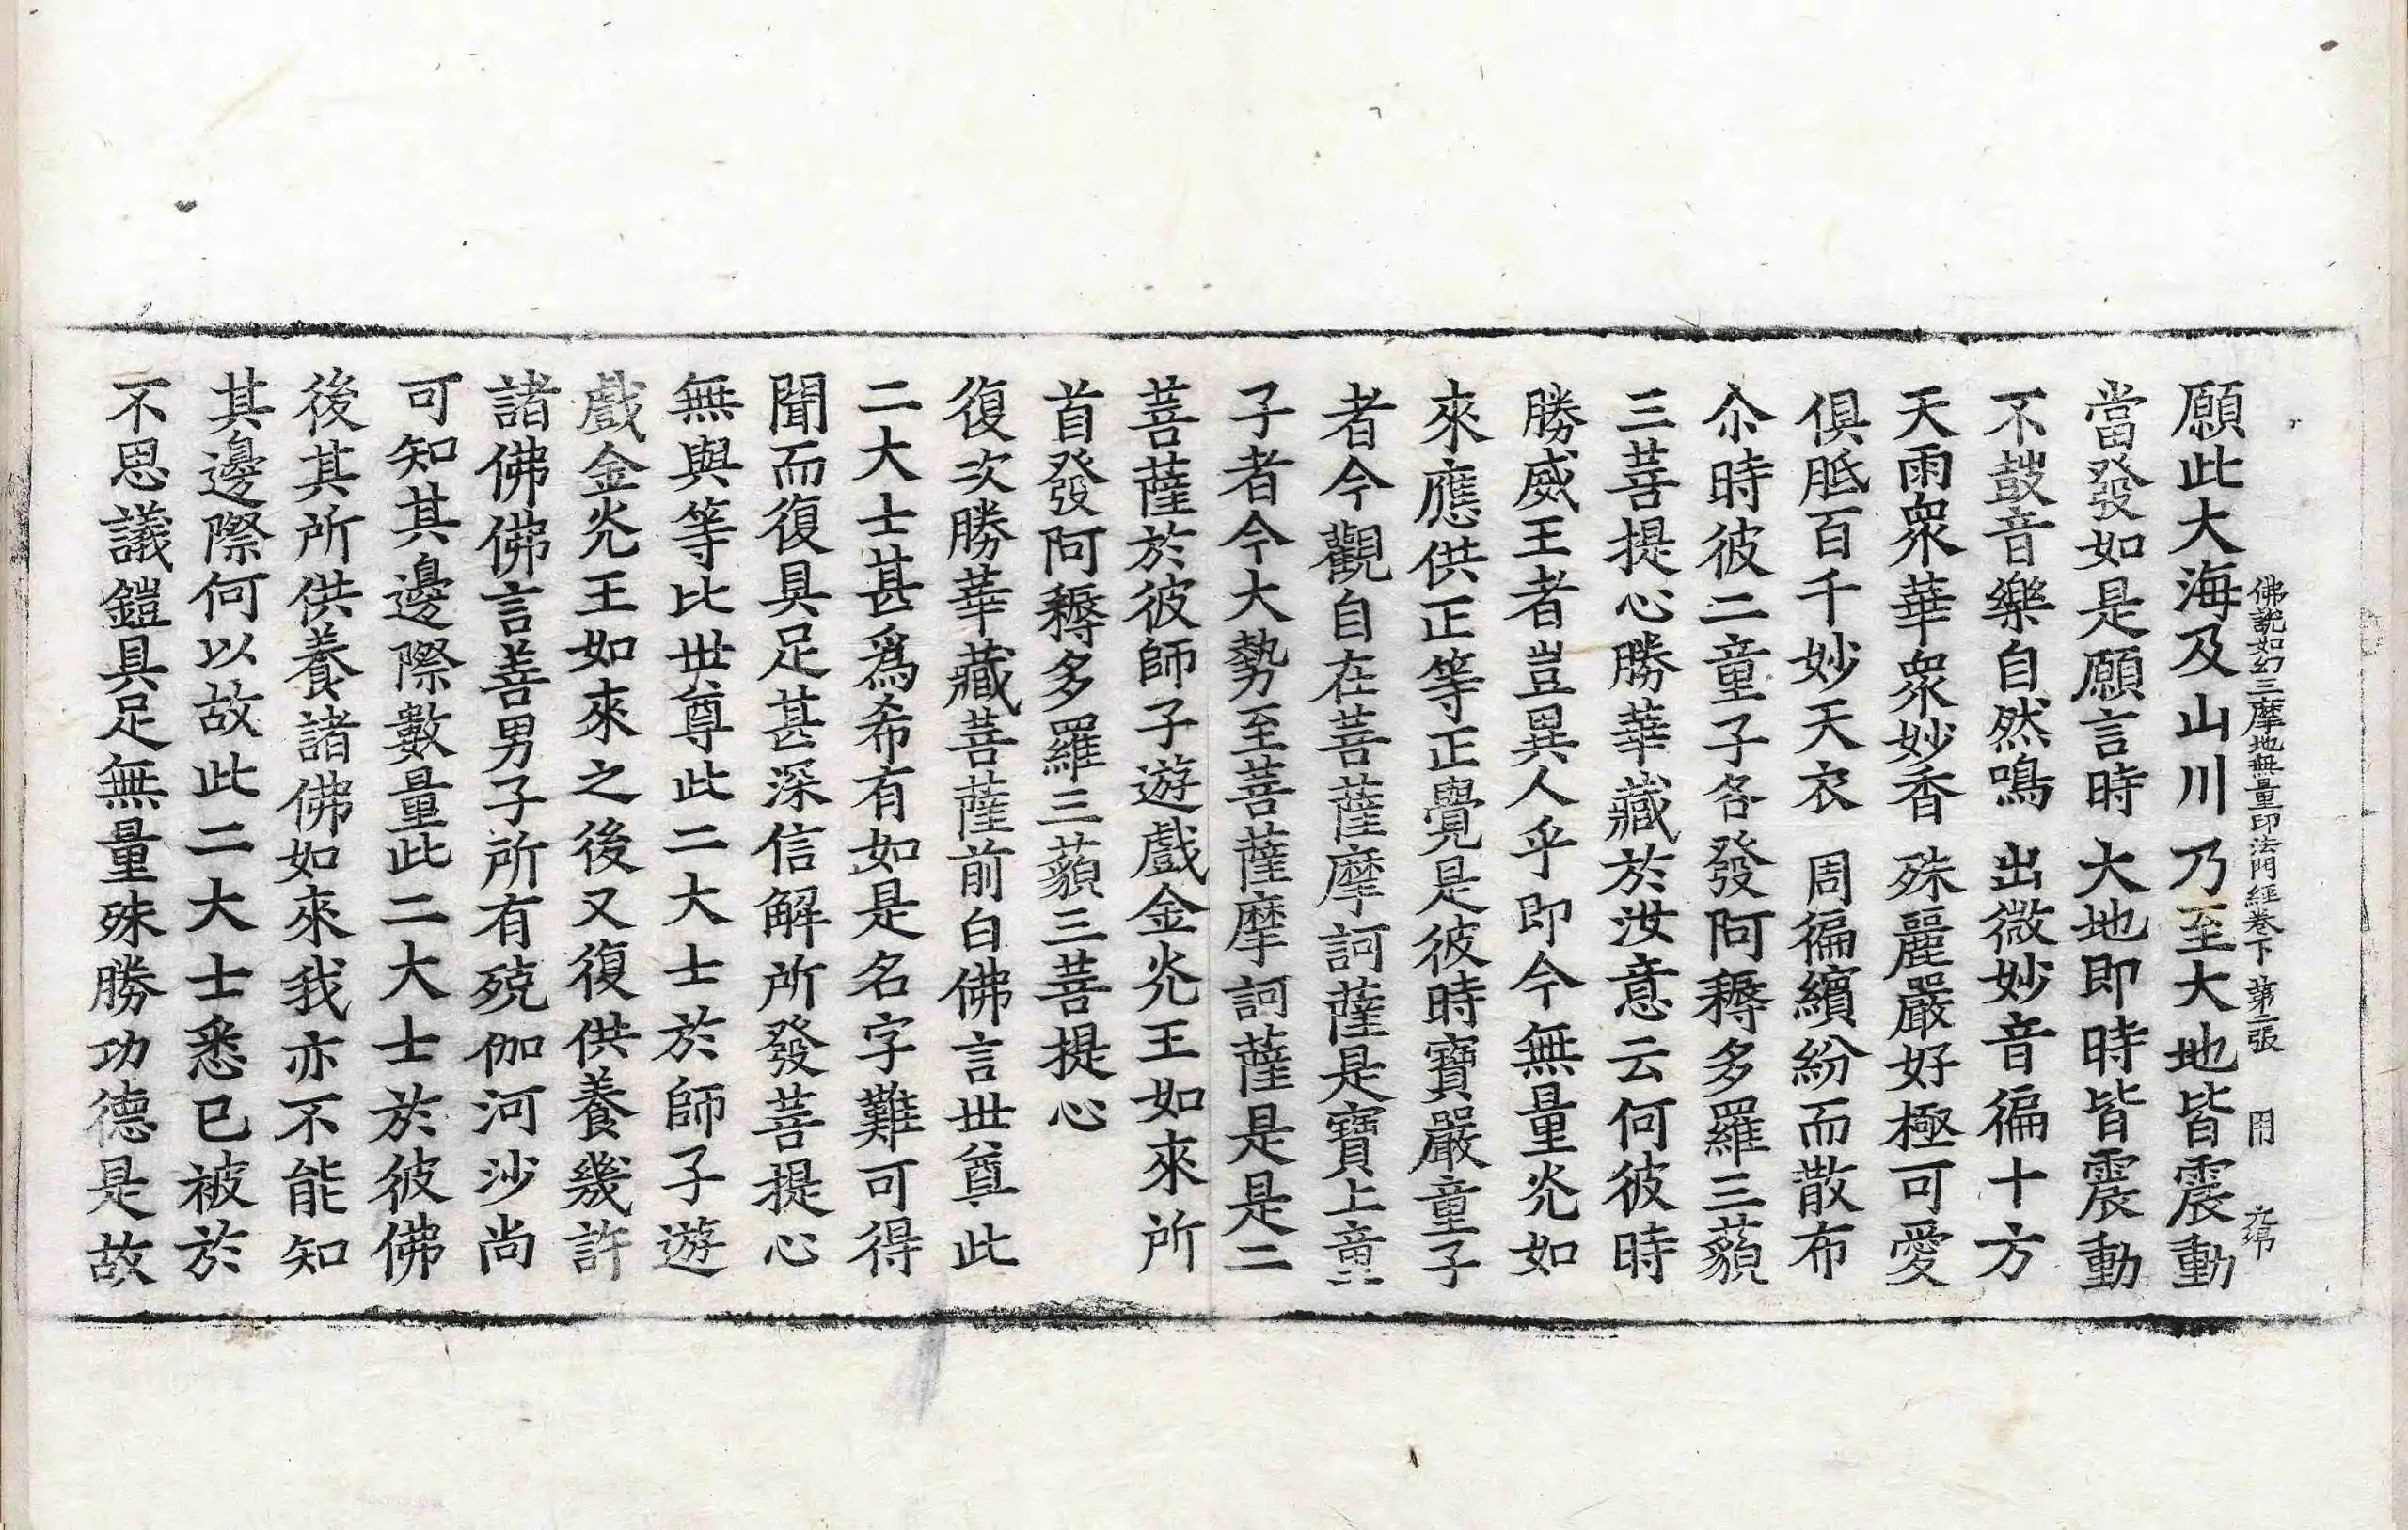 佛說如幻三摩地無量印法門經卷下 第二張 用 九帋
願此大海及山川 乃至大地皆震動
當發如是願言時 大地即時皆震動
不鼓音樂自然鳴 出微妙音徧十方
天雨衆華衆妙香 殊麗嚴好極可愛
俱胝百千妙天衣 周徧繽紛而散布
尒時彼二童子各發阿耨多羅三藐
三菩提心勝華藏於汝意云何彼時
勝威王者豈異人乎即今無量炗如
來應供正等正覺是彼時寶嚴童子
者今觀自在菩薩摩訶薩是寶上童
子者今大勢至菩薩摩訶薩是是二
菩薩於彼師子遊戲金炗王如來所
首發阿耨多羅三藐三菩提心
復次勝華藏菩薩前白佛言世尊此
二大士甚爲希有如是名字難可得
聞而復具足甚深信解所發菩提心
無與等比世尊此二大士於師子遊
戲金炗王如來之後又復供養幾許
諸佛佛言善男子所有殑伽河沙尚
可知其邊際數量此二大士於彼佛
後其所供養諸佛如來我亦不能知
其邊際何以故此二大士悉已被於
不思議鎧具足無量殊勝功德是故